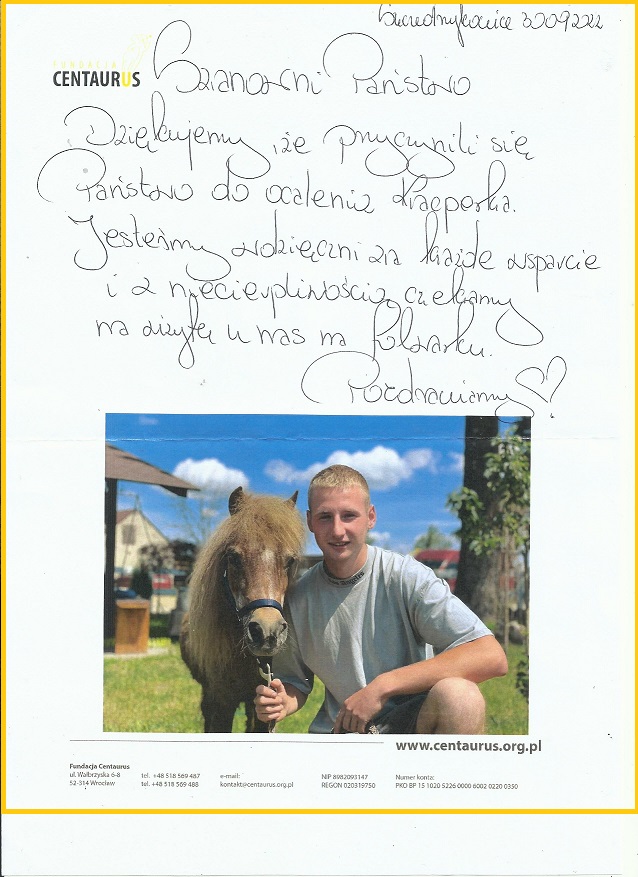 Szczedrzykowice 30.09.2022
FUNDACJA
CENTAURUS
Szanowni Państwo
Dziękujemy, że przyczynili się
Państwo do ocalenia Kacperka.
Jesteśmy wdzięczni za każde wsparcie
i z niecierpliwością czekamy
na wizytę u nas na folwarku.
Pozdrawiamy
www.centaurus.org.pl
Fundacja Centaurus
ul. Wałbrzyska 6-8 tel. +48 518 569 487 e-mail: NIP 8982093147 Numer konta:
52-314 Wrocław tel. +48 518 569 488 kontakt@centaurus.org.pl REGON 020319750 PKO BP 15 1020 5226 0000 6002 0220 0350